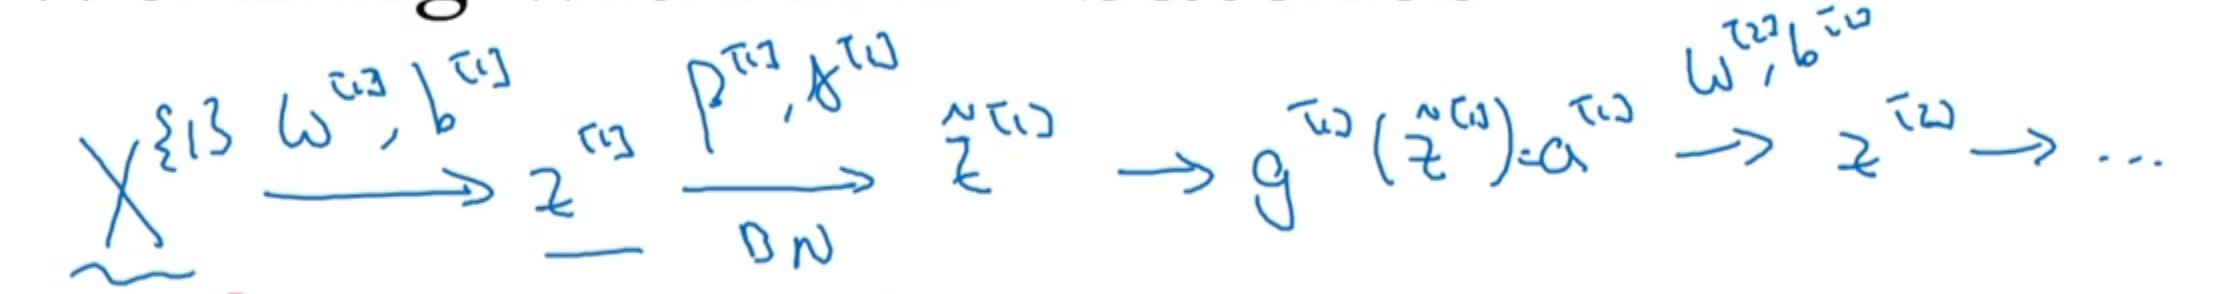 X^{1} W^[1], b^[1] → z^[1] β^[1], γ^[1] → BN z̃^[1] → g^[1](z̃^[1]) = a^[1] W^[2], b^[2] → z^[2] → ...